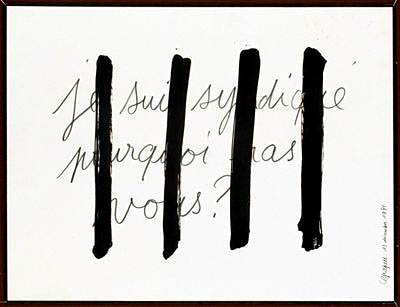 je suis syndiqué
pourquoi pas
vous?
décembre 1971